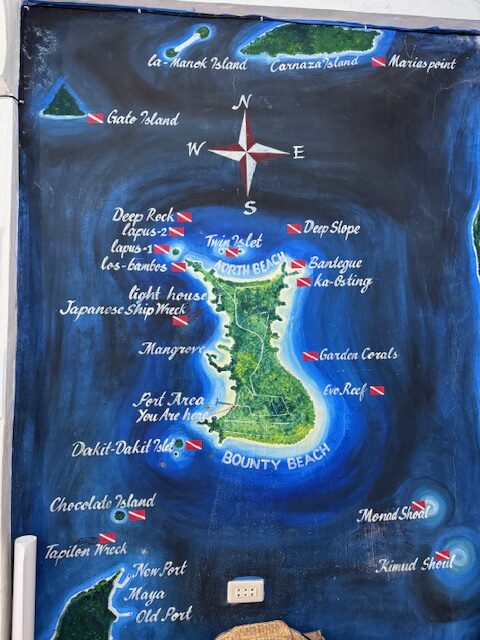 la-Manok Island
Carnaza Island
Marias point
Gato Island
N
W
E
S
Deep Rock
lapus-2
lapus-1
los-bambos
Twin Islet
NORTH BEACH
Deep Slope
Bantegue
Ka-Osting
light house
Japanese Ship Wreck
Mangrove
Garden Corals
Evo Reef
Port Area
You Are here
Dakit-Dakit Islet
BOUNTY BEACH
Chocolate Island
Tapilon Wreck
Monad Shoal
Kimud Shoul
New Port
Maya
Old Port